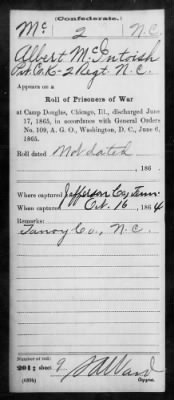 (Confederate.)
Mc 2 N.C.
Albert McIntoish
Pvt. Co. K-2 Regt. N.C.
Appears on a
Roll of Prisoners of War
at Camp Douglas, Chicago, Ill., discharged June
17, 1865, in accordance with General Orders
No. 109, A. G. O., Washington, D. C., June 6,
1865.
Roll dated Not dated
, 186
Where captured Jefferson Co, Tenn
When captured Oct. 16, 1864
Remarks:
Co., N.C.
Number of roll:
201; sheet 9
Copyist.